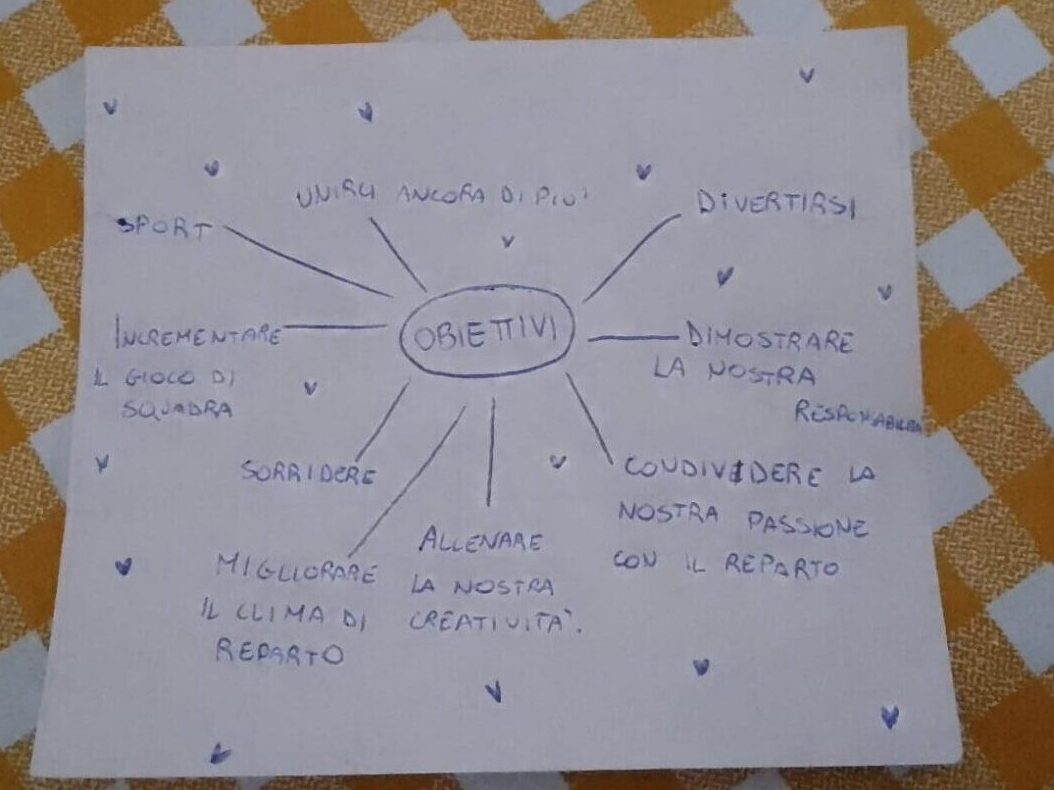 UNIRCI ANCORA DI PIU'
DIVERTIRSI
SPORT
OBIETTIVI
INCREMENTARE
IL GIOCO DI
SQUADRA
DIMOSTRARE
LA NOSTRA
RESPONSABILITA'
SORRIDERE
CONDIVIDERE LA
NOSTRA PASSIONE
CON IL REPARTO
MIGLIORARE
IL CLIMA DI
REPARTO
ALLENARE
LA NOSTRA
CREATIVITA'.